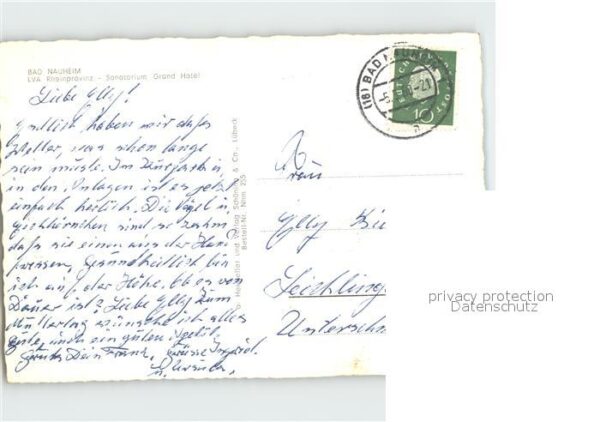 BAD NAUHEIM
LVA Rheinprovinz - Sanatorium Grand Hotel
Liebe Elly!
Endlich haben wir das
Wetter, was schon lange
sein müsste. Im
in den Anlagen ist es jetzt
einfach herrlich. Die Vögel u.
Eichhörnchen sind so zahm
daß sie einen aus der Hand
fressen. Gesundheitlich bin
ich auf der Höhe. Ob es von
Dauer ist? Liebe Elly zum
Muttertag wünsche ich alles
gute, und ein guten
Dein Franz,
u. Ursula.
Schöning & Co., Lübeck
Bestell-Nr. Nhm 255
(16) BAD NAUHEIM
DEUTSCHE
10
Frau
Elly
Leichling
Untersch
privacy protection
Datenschutz